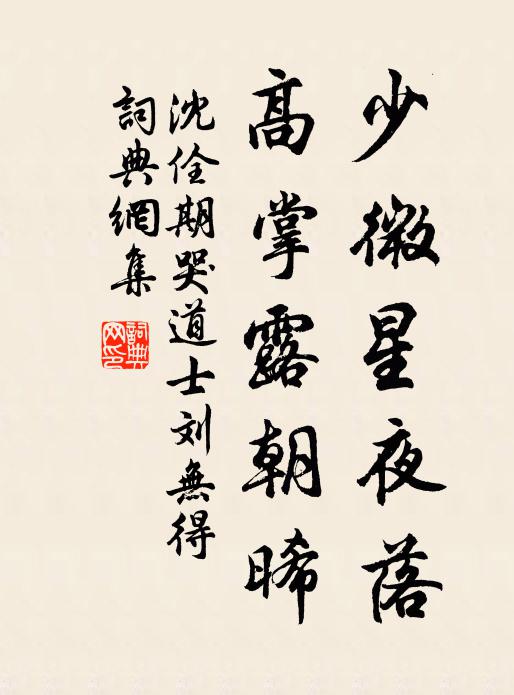 少微星夜落
高掌露朝晞
沈佺期哭道士刘無得
詞典網集
詞典网印